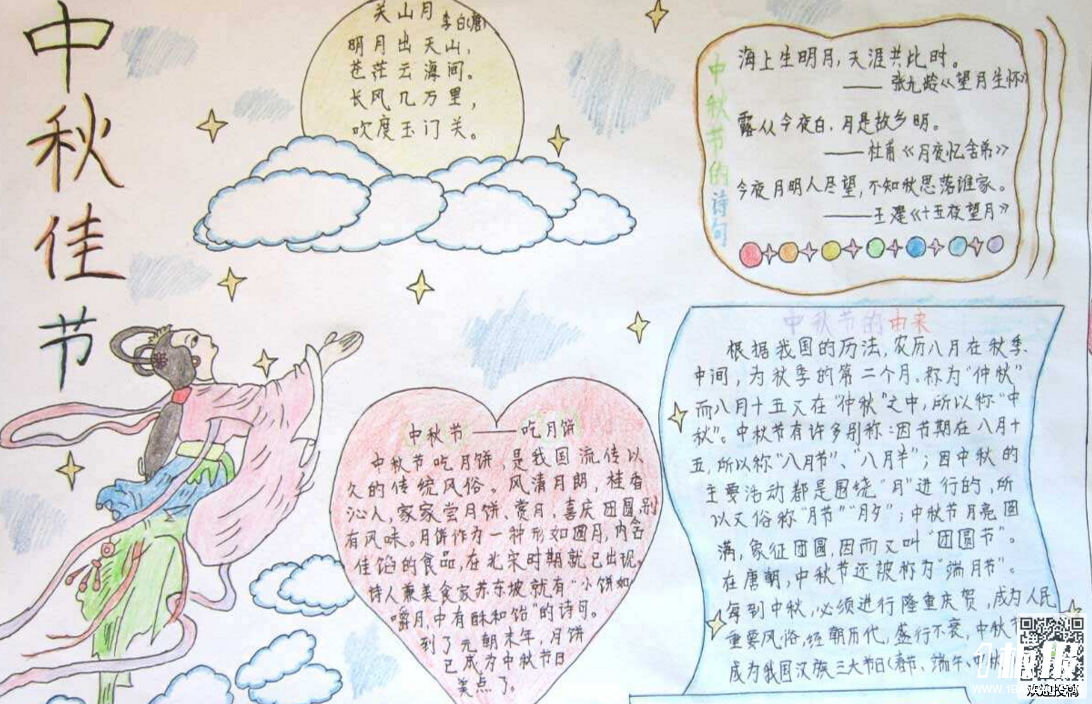 中秋佳节
关山月 李白(唐)
明月出天山，
苍茫云海间。
长风几万里，
吹度玉门关。
中秋节的诗句
海上生明月，天涯共此时。
——张九龄《望月生怀》
露从今夜白，月是故乡明。
——杜甫《月夜忆舍弟》
今夜月明人尽望，不知秋思落谁家。
——王建《十五夜望月》
中秋节——吃月饼
中秋节吃月饼，是我国流传以
久的传统风俗。风清月朗，桂香
沁人，家家尝月饼、赏月，喜庆团圆，别
有风味。月饼作为一种形如圆月，内含
佳馅的食品，在北宋时期就已出现。
诗人兼美食家苏东坡就有“小饼如
嚼月，中有酥和饴”的诗句。
到了元朝末年，月饼
已成为中秋节日
美点了。
中秋节的由来
根据我国的历法，农历八月在秋季
中间，为秋季的第二个月，称为“仲秋”
而八月十五又在“仲秋”之中，所以称“中
秋”。中秋节有许多别称：因节期在八月十
五，所以称“八月节”、“八月半”；因中秋的
主要活动都是围绕“月”进行的，所
以又俗称“月节”“月夕”；中秋节月亮圆
满，象征团圆，因而又叫“团圆节”。
在唐朝，中秋节还被称为“端月节”。
每到中秋，必须进行隆重庆贺，成为人民
重要风俗，经朝历代，盛行不衰，中秋节
成为我国汉族三大节日(春节、端午、中秋
欢迎投稿